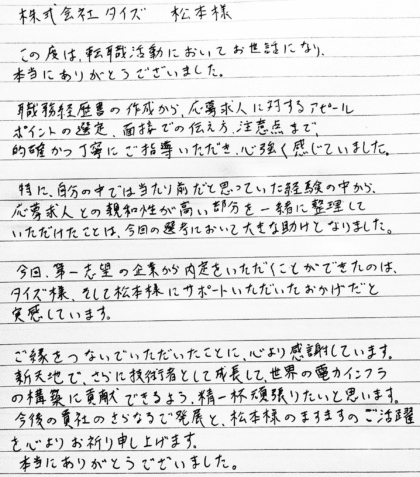 株式会社タイズ 松本様
この度は、転職活動においてお世話になり、
本当にありがとうございました。
職務経歴書の作成から、応募求人に対するアピール
ポイントの選定、面接での伝え方、注意点まで、
的確かつ丁寧にご指導いただき、心強く感じていました。
特に、自分の中では当たり前だと思っていた経験の中から、
応募求人との親和性が高い部分を一緒に整理して
いただけたことは、今回の選考において大きな助けとなりました。
今回、第一志望の企業から内定をいただくことができたのは、
タイズ様、そして松本様にサポートいただいたおかげだと
実感しています。
ご縁をつないでいただいたことに、心より感謝しています。
新天地で、さらに技術者として成長して、世界の電力インフラ
の構築に貢献できるよう、精一杯頑張りたいと思います。
今後の貴社のさらなるご発展と、松本様のますますのご活躍
を心よりお祈り申し上げます。
本当にありがとうございました。